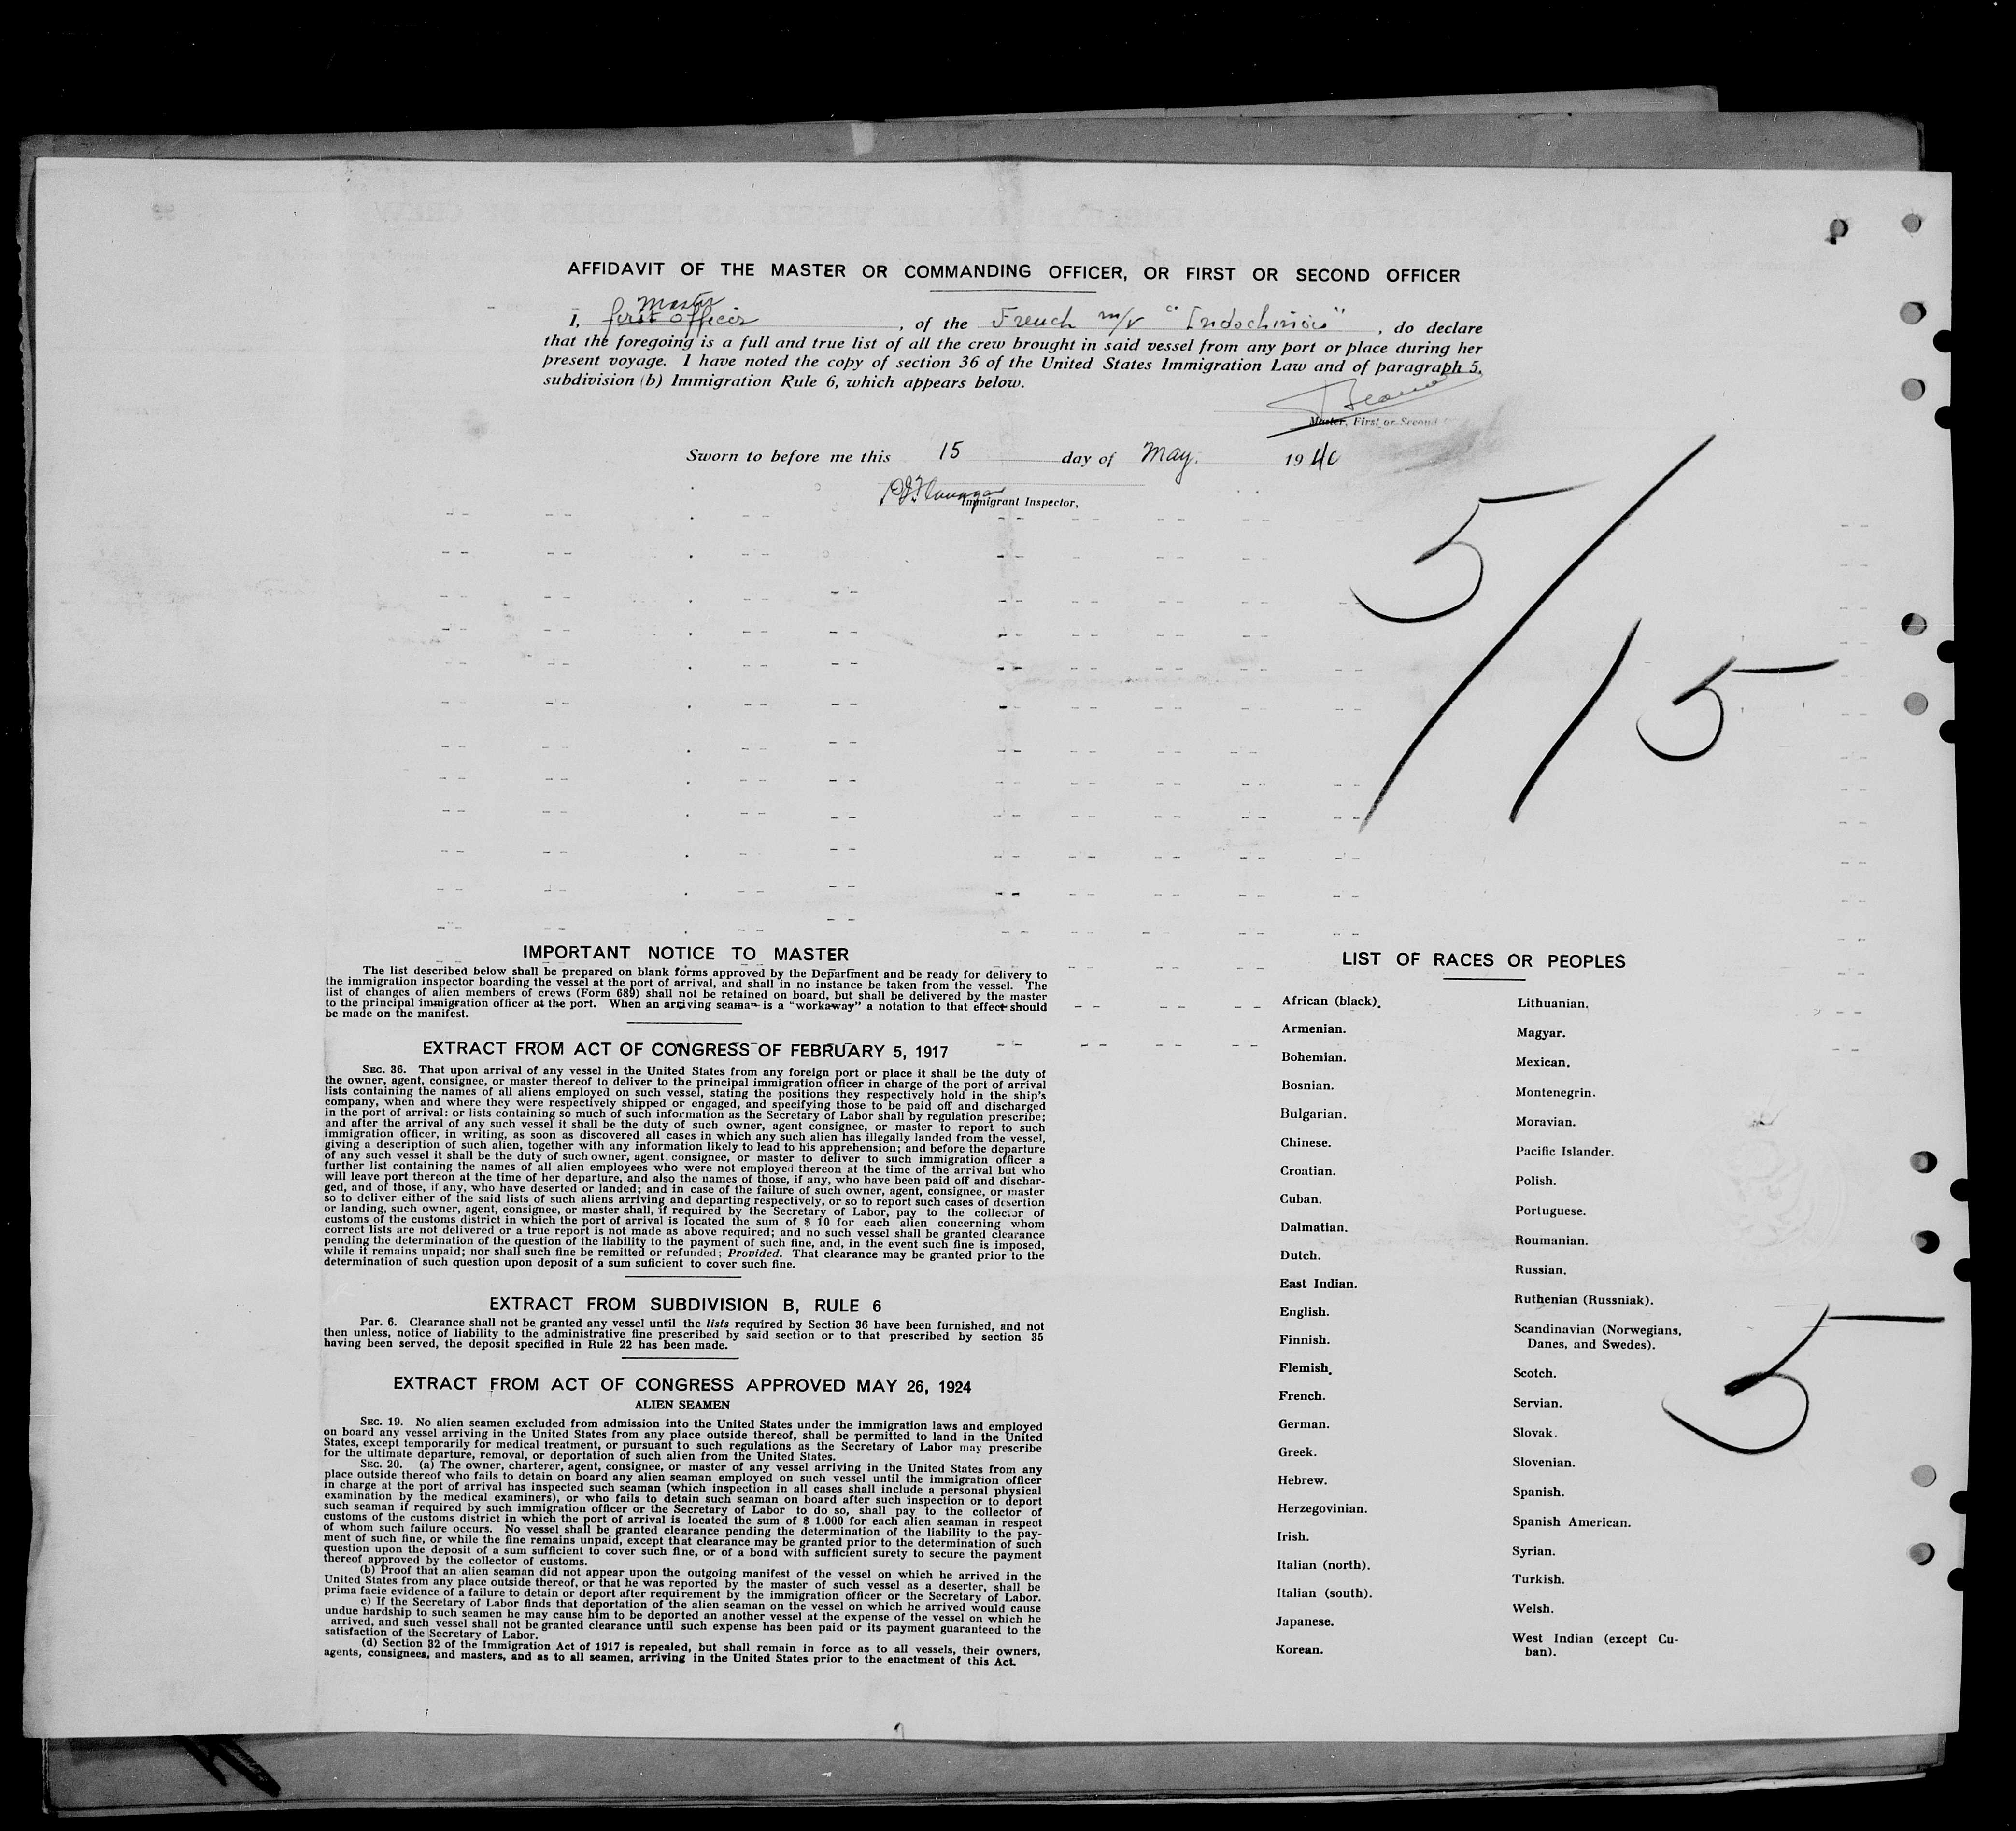 AFFIDAVIT OF THE MASTER OR COMMANDING OFFICER, OR FIRST OR SECOND OFFICER
Master
I, first officer, of the French m/v "Indochinois", do declare
that the foregoing is a full and true list of all the crew brought in said vessel from any port or place during her
present voyage. I have noted the copy of section 36 of the United States Immigration Law and of paragraph 5.
subdivision (b) Immigration Rule 6, which appears below.
Master, First or Second
Sworn to before me this 15 day of May. 1940
Immigrant Inspector,
5/15
IMPORTANT NOTICE TO MASTER
The list described below shall be prepared on blank forms approved by the Department and be ready for delivery to
the immigration inspector boarding the vessel at the port of arrival, and shall in no instance be taken from the vessel. The
list of changes of alien members of crews (Form 689) shall not be retained on board, but shall be delivered by the master
to the principal immigration officer at the port. When an arriving seaman is a "workaway" a notation to that effect should
be made on the manifest.
EXTRACT FROM ACT OF CONGRESS OF FEBRUARY 5, 1917
SEC. 36. That upon arrival of any vessel in the United States from any foreign port or place it shall be the duty of
the owner, agent, consignee, or master thereof to deliver to the principal immigration officer in charge of the port of arrival
lists containing the names of all aliens employed on such vessel, stating the positions they respectively hold in the ship's
company, when and where they were respectively shipped or engaged, and specifying those to be paid off and discharged
in the port of arrival: or lists containing so much of such information as the Secretary of Labor shall by regulation prescribe;
and after the arrival of any such vessel it shall be the duty of such owner, agent consignee, or master to report to such
immigration officer, in writing, as soon as discovered all cases in which any such alien has illegally landed from the vessel,
giving a description of such alien, together with any information likely to lead to his apprehension; and before the departure
of any such vessel it shall be the duty of such owner, agent, consignee, or master to deliver to such immigration officer a
further list containing the names of all alien employees who were not employed thereon at the time of the arrival but who
will leave port thereon at the time of her departure, and also the names of those, if any, who have been paid off and dischar-
ged, and of those, if any, who have deserted or landed; and in case of the failure of such owner, agent, consignee, or master
so to deliver either of the said lists of such aliens arriving and departing respectively, or so to report such cases of desertion
or landing, such owner, agent, consignee, or master shall, if required by the Secretary of Labor, pay to the collector of
customs of the customs district in which the port of arrival is located the sum of $ 10 for each alien concerning whom
correct lists are not delivered or a true report is not made as above required; and no such vessel shall be granted clearance
pending the determination of the question of the liability to the payment of such fine, and, in the event such fine is imposed,
while it remains unpaid; nor shall such fine be remitted or refunded; Provided. That clearance may be granted prior to the
determination of such question upon deposit of a sum suficient to cover such fine.
EXTRACT FROM SUBDIVISION B, RULE 6
Par. 6. Clearance shall not be granted any vessel until the lists required by Section 36 have been furnished, and not
then unless, notice of liability to the administrative fine prescribed by said section or to that prescribed by section 35
having been served, the deposit specified in Rule 22 has been made.
EXTRACT FROM ACT OF CONGRESS APPROVED MAY 26, 1924
ALIEN SEAMEN
SEC. 19. No alien seamen excluded from admission into the United States under the immigration laws and employed
on board any vessel arriving in the United States from any place outside thereof, shall be permitted to land in the United
States, except temporarily for medical treatment, or pursuant to such regulations as the Secretary of Labor may prescribe
for the ultimate departure, removal, or deportation of such alien from the United States.
SEC. 20. (a) The owner, charterer, agent, consignee, or master of any vessel arriving in the United States from any
place outside thereof who fails to detain on board any alien seaman employed on such vessel until the immigration officer
in charge at the port of arrival has inspected such seaman (which inspection in all cases shall include a personal physical
examination by the medical examiners), or who fails to detain such seaman on board after such inspection or to deport
such seaman if required by such immigration officer or the Secretary of Labor to do so, shall pay to the collector of
customs of the customs district in which the port of arrival is located the sum of $ 1.000 for each alien seaman in respect
of whom such failure occurs. No vessel shall be granted clearance pending the determination of the liability to the pay-
ment of such fine, or while the fine remains unpaid, except that clearance may be granted prior to the determination of such
question upon the deposit of a sum sufficient to cover such fine, or of a bond with sufficient surety to secure the payment
thereof approved by the collector of customs.
(b) Proof that an alien seaman did not appear upon the outgoing manifest of the vessel on which he arrived in the
United States from any place outside thereof, or that he was reported by the master of such vessel as a deserter, shall be
prima facie evidence of a failure to detain or deport after requirement by the immigration officer or the Secretary of Labor.
c) If the Secretary of Labor finds that deportation of the alien seaman on the vessel on which he arrived would cause
undue hardship to such seamen he may cause him to be deported an another vessel at the expense of the vessel on which he
arrived, and such vessel shall not be granted clearance until such expense has been paid or its payment guaranteed to the
satisfaction of the Secretary of Labor.
(d) Section 32 of the Immigration Act of 1917 is repealed, but shall remain in force as to all vessels, their owners,
agents, consignees, and masters, and as to all seamen, arriving in the United States prior to the enactment of this Act.
LIST OF RACES OR PEOPLES
African (black).
Armenian.
Bohemian.
Bosnian.
Bulgarian.
Chinese.
Croatian.
Cuban.
Dalmatian.
Dutch.
East Indian.
English.
Finnish.
Flemish.
French.
German.
Greek.
Hebrew.
Herzegovinian.
Irish.
Italian (north).
Italian (south).
Japanese.
Korean.
Lithuanian.
Magyar.
Mexican.
Montenegrin.
Moravian.
Pacific Islander.
Polish.
Portuguese.
Roumanian.
Russian.
Ruthenian (Russniak).
Scandinavian (Norwegians,
Danes, and Swedes).
Scotch.
Servian.
Slovak.
Slovenian.
Spanish.
Spanish American.
Syrian.
Turkish.
Welsh.
West Indian (except Cu-
ban).
5